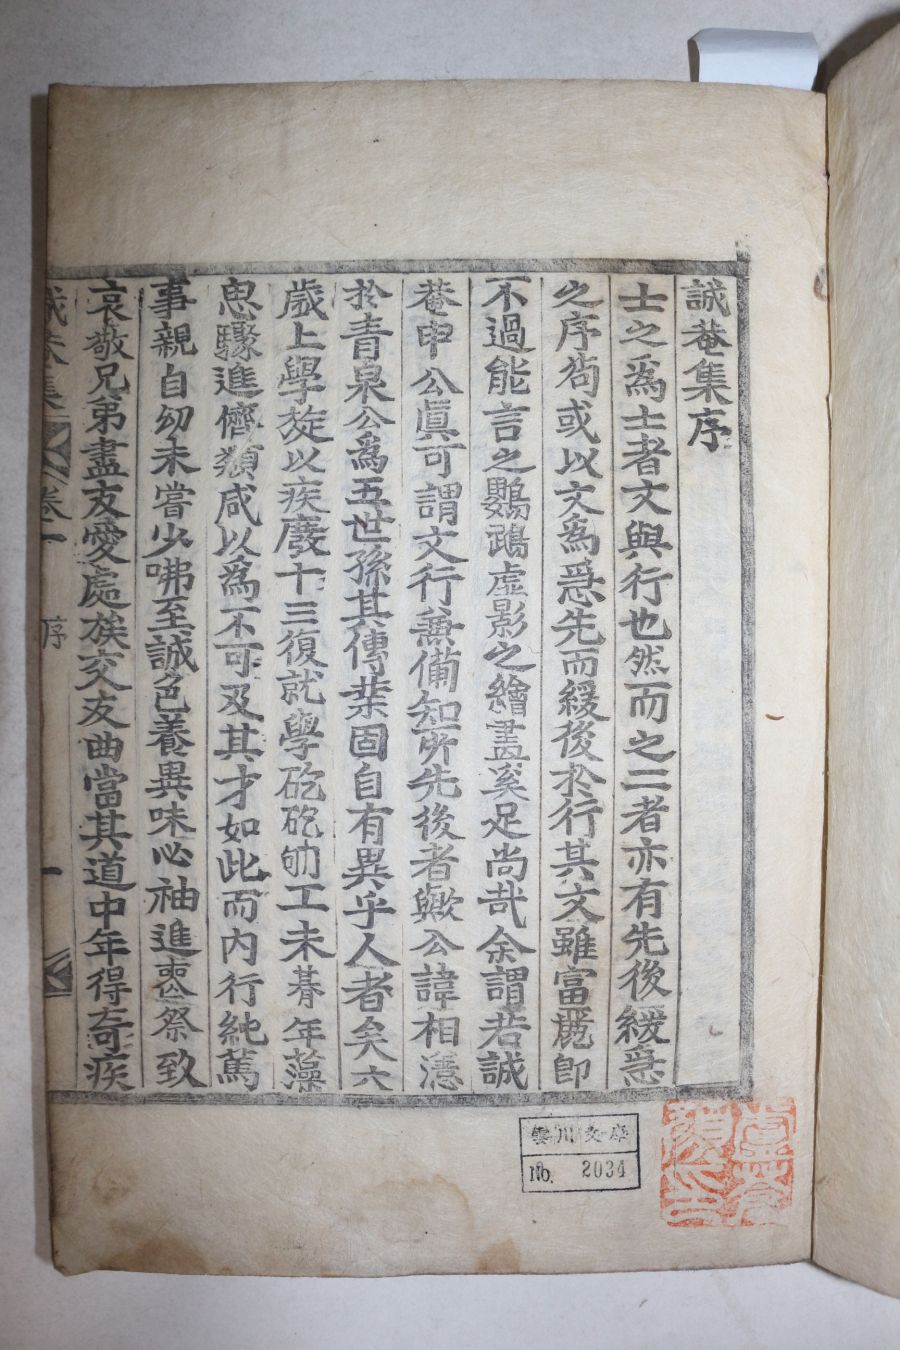 誠菴集序
士之爲士者文與行也然而之二者亦有先後緩急
之序苟或以文爲急先而緩後於行其文雖富麗卽
不過能言之鸚鵡虛影之繪畫奚足尚哉余謂若誠
菴申公眞可謂文行兼備知所先後者歟公諱相濦
於青泉公爲五世孫其傳業固自有異乎人者矣六
歲上學旋以疾廢十三復就學矻矻劬工未朞年藻
思驟進儕類咸以爲不可及其才如此而內行純篤
事親自幼未嘗少咈至誠色養異味必袖進喪祭致
哀敬兄弟盡友愛處族交友曲當其道中年得奇疾
誠菴集
卷一
序
一
雲川文庫
No. 2034